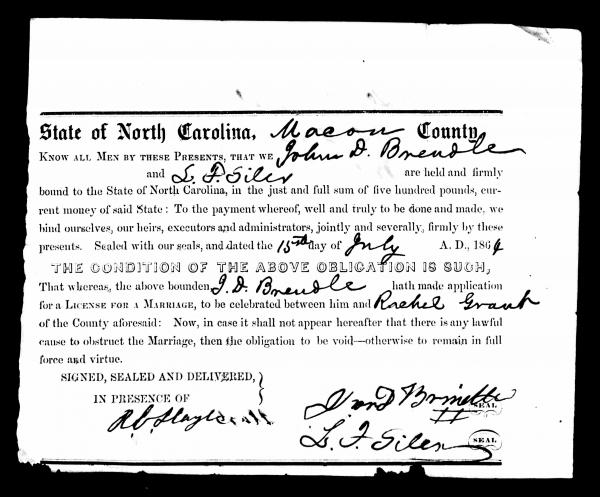 State of North Carolina, Macon County
KNOW ALL MEN BY THESE PRESENTS, THAT WE John D. Brendle
and L. F. Siler are held and firmly
bound to the State of North Carolina, in the just and full sum of five hundred pounds, cur-
rent money of said State: To the payment whereof, well and truly to be done and made, we
bind ourselves, our heirs, executors and administrators, jointly and severally, firmly by these
presents. Sealed with our seals, and dated the 15th day of July A. D., 1864
THE CONDITION OF THE ABOVE OBLIGATION IS SUCH,
That whereas, the above bounden J. D. Brendle hath made application
for a LICENSE FOR A MARRIAGE, to be celebrated between him and Rachel Grant
of the County aforesaid: Now, in case it shall not appear hereafter that there is any lawful
cause to obstruct the Marriage, then the obligation to be void—otherwise to remain in full
force and virtue.
SIGNED, SEALED AND DELIVERED,
IN PRESENCE OF
SEAL
L. F. Siler SEAL